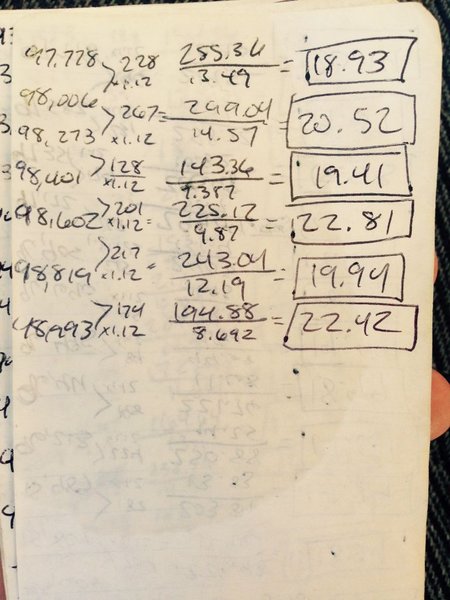 97,778 > 228 255.36
x1.12 13.49 = 18.93
98,006 > 267 = 299.04
x1.12 14.57 = 20.52
98,273
> 128 143.36
x1.12 7.387 = 19.41
98,401
> 201 225.12
98,602 x1.12 = 9.87 = 22.81
> 217 243.04
98,819 x1.12 = 12.19 = 19.94
> 174 194.88
98,993 x1.12 8.692 = 22.42